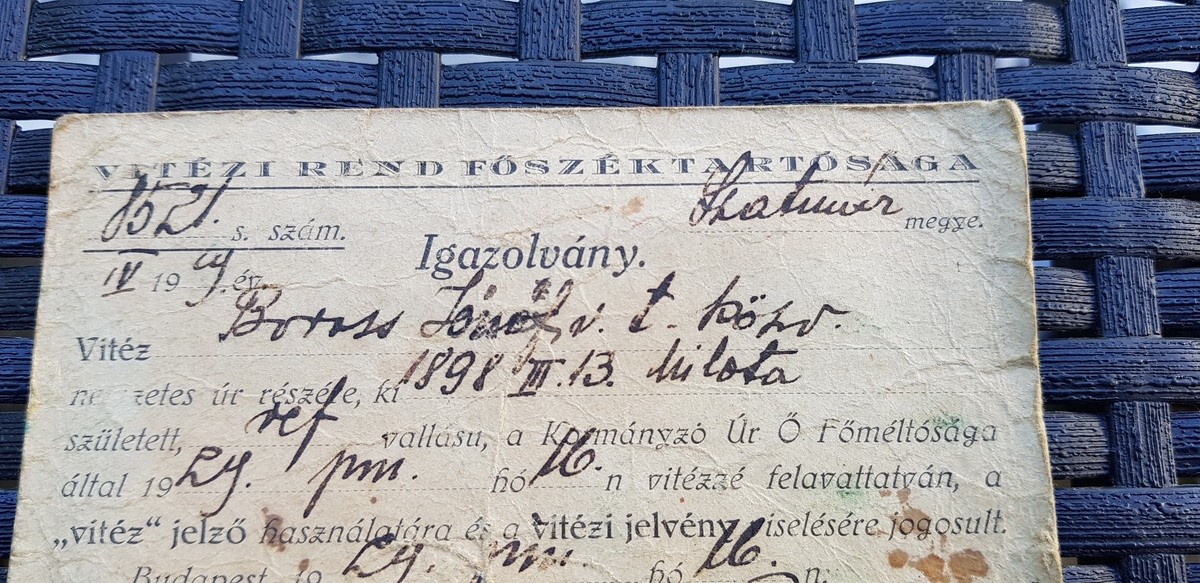 VITÉZI REND FŐSZÉKTARTÓSÁGA
s. szám. Szatmár megye.
IV 1929. év.
Igazolvány.
Vitéz Boross v. t. közv.
nemzetes úr részére, ki 1898 III. 13. Milota
született, ref vallásu, a Kormányzó Úr Ő Főméltósága
által 1929. hó 16. n vitézzé felavattatván, a
„vitéz" jelző használatára és a vitézi jelvény viselésére jogosult.
Budapest, 1929. hó 16. n.